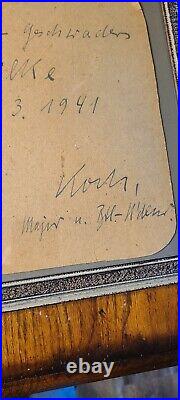 - Geschwaders
lke
3. 1941
Koch,
Major u.